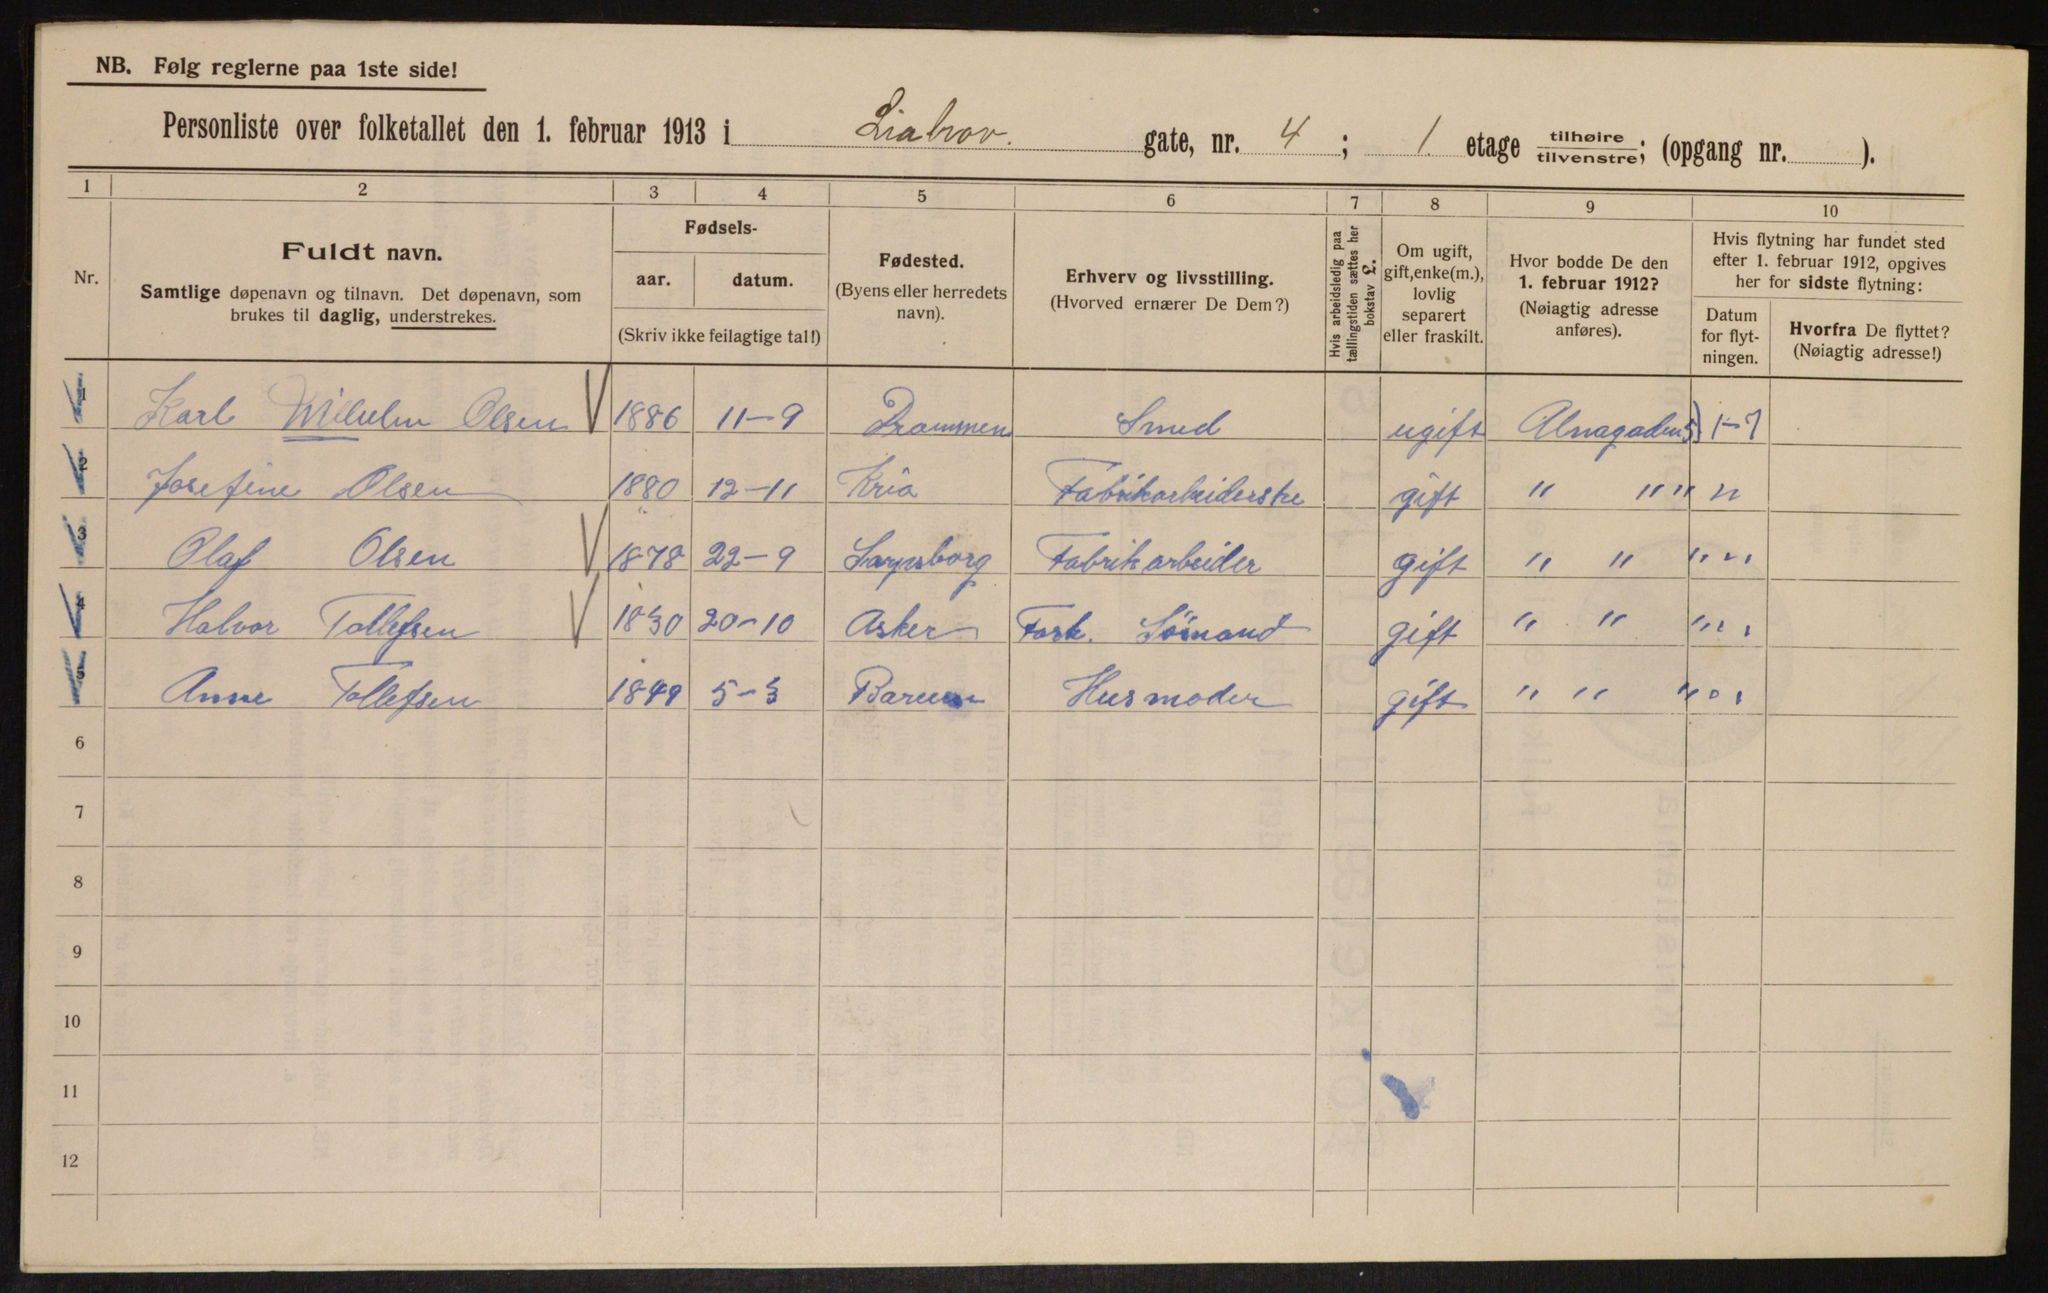 NB. Følg reglerne paa 1ste side!
Personliste over folketallet den 1. februar 1913 i Liabrov. gate, nr. 4 ; 1 etage tilhøire / tilvenstre; (opgang nr. ).
1 2 3 4 5 6 7 8 9 10
Nr.
Fuldt navn.
Samtlige døpenavn og tilnavn. Det døpenavn, som
brukes til daglig, understrekes.
Fødsels-
aar. datum.
(Skriv ikke feilagtige tal!)
Fødested.
(Byens eller herredets
navn).
Erhverv og livsstilling.
(Hvorved ernærer De Dem?)
Hvis arbeidsledig paa
tællingstiden sættes her
bokstav £.
Om ugift,
gift, enke(m.),
lovlig
separert
eller fraskilt.
Hvor bodde De den
1. februar 1912?
(Nøiagtig adresse
anføres).
Hvis flytning har fundet sted
efter 1. februar 1912, opgives
her for sidste flytning:
Datum
for flyt-
ningen.
Hvorfra De flyttet?
(Nøiagtig adresse!)
1 Karl Wilhelm Olsen 1886 11-9 Drammen Smed ugift Alnagaden 5 1-7
2 Josefine Olsen 1880 12-11 Kria Fabrikarbeiderske gift " " " "
3 Olaf Olsen 1878 22-9 Sarpsborg Fabrikarbeider gift " " " "
4 Halvor Tollefsen 1830 20-10 Asker Fork. Sømand gift " " " "
5 Anne Tollefsen 1849 5-3 Barum Husmoder gift " " " "
6
7
8
9
10
11
12